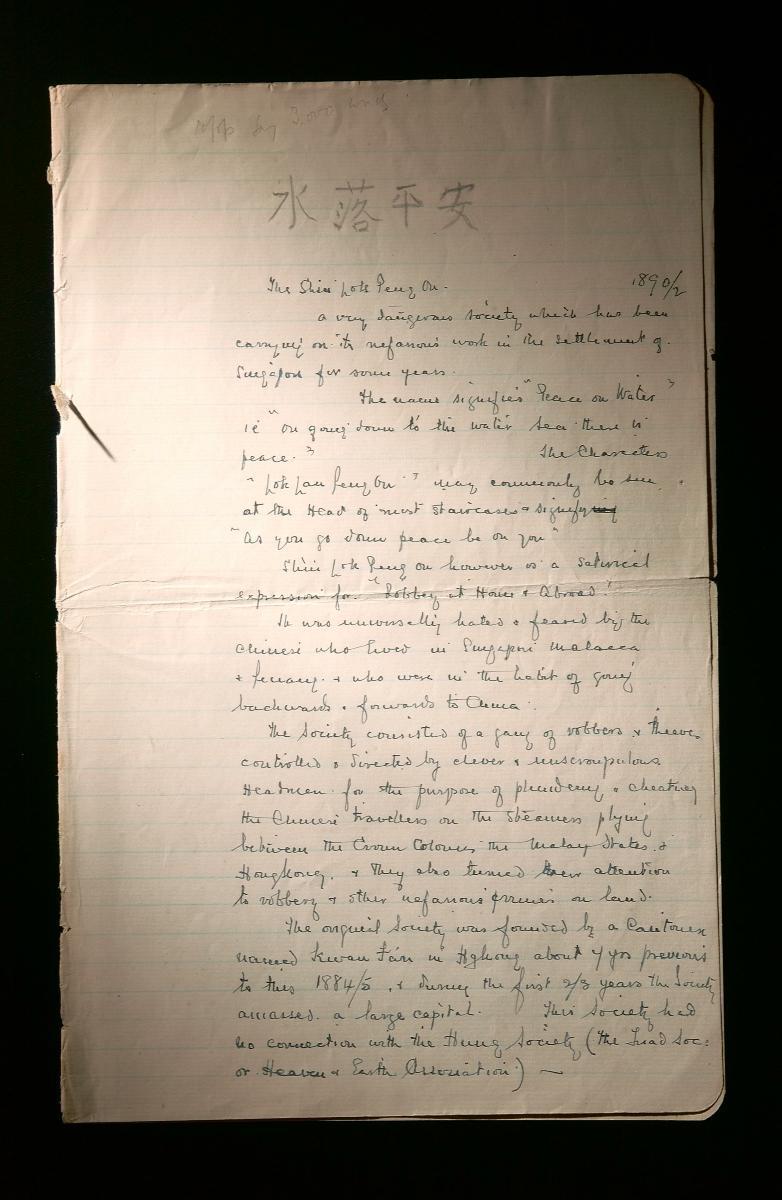 水落平安
The Shui Lok Peng On. 1890/2
a very dangerous society which has been
carrying on its nefarious work in the settlement of
Singapore for some years.
The name signifies "Peace on Water"
ie "on going down to the water sea there is
peace." The Characters
"Lok Lau Peng On" may commonly be seen
at the Head of most staircases & signifying
"As you go down peace be on you"
Shui Lok Peng on however is a satirical
expression for "Robbery at Home & Abroad."
It was universally hated & feared by the
Chinese who lived in Singapore Malacca
& Penang. & who were in the habit of going
backwards & forwards to China.
The Society consisted of a gang of robbers & thieves
controlled & directed by clever & unscroupulous
Headmen for the purpose of plundering & cheating
the Chinese travellers on the steamers plying
between the Crown Colonies the Malay States &
Hongkong, & they also turned their attention
to robbery & other nefarious crimes on land.
The original Society was founded by a Cantonese
named Kwan Fan in Hgkong about 7 yrs previous
to this 1884/5, & during the first 2/3 years the Society
amassed a large capital. This Society had
no connection with the Hung Society (the Triad Soc:
or Heaven & Earth Association) —